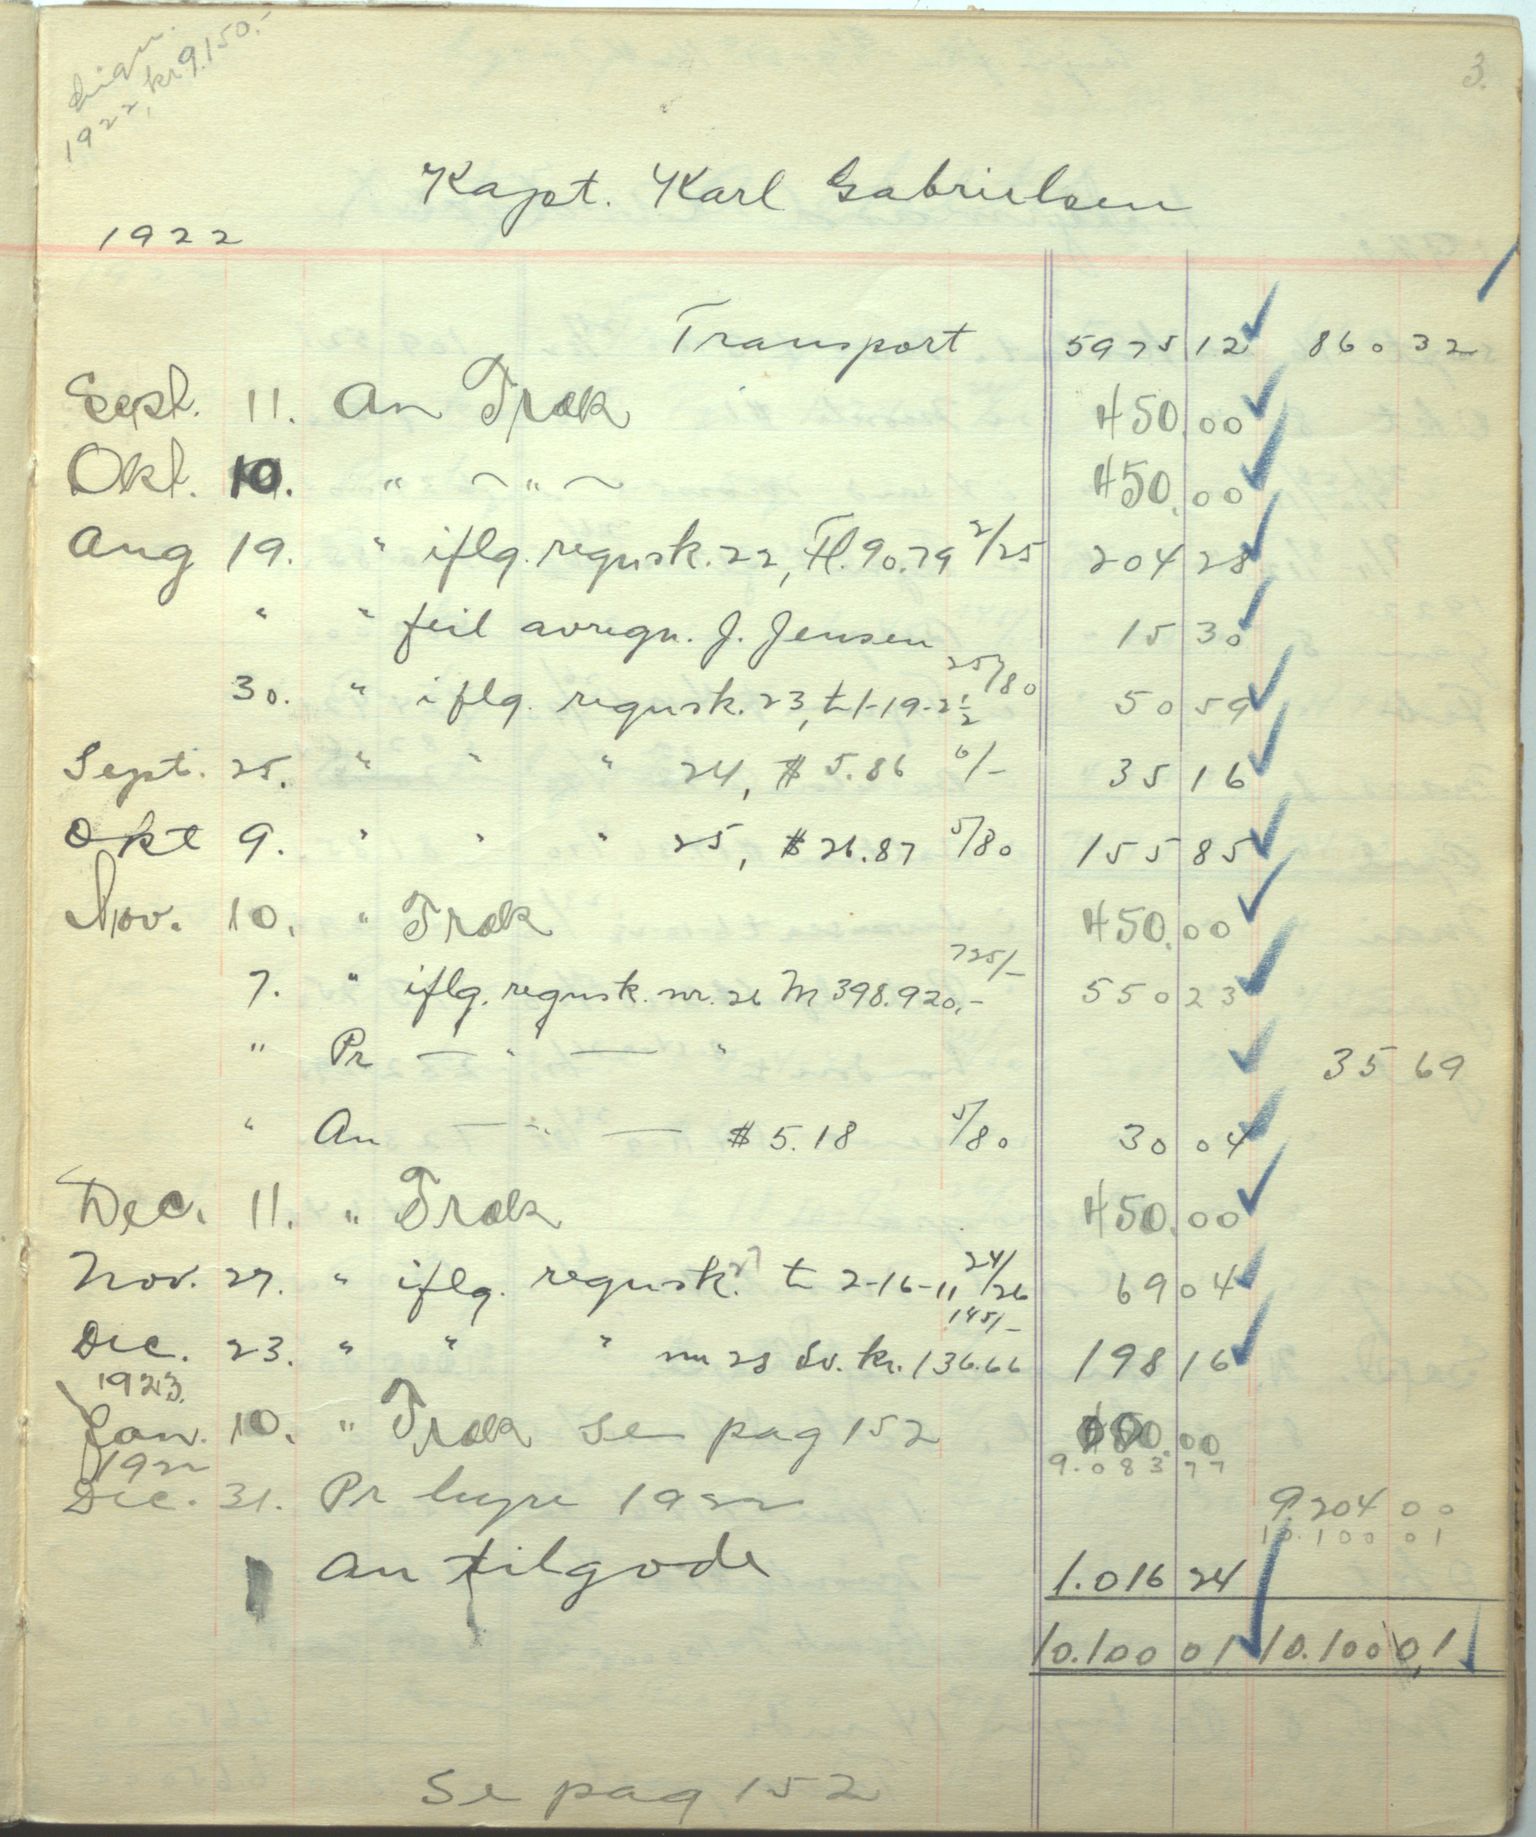 Lign.
1922, kr 9.150.-
3.
Kapt. Karl Gabrielsen
1922
Transport 5975 12 860 32
Sept. 11. An Træk 450.00
Okt. 10. " — " — 450.00
Aug 19. " iflg. regnsk. 22, Fl. 90.79 2/25 204 28
" " feil avregn. J. Jensen 15 30
30. " iflg. regnsk. 23, £ 1-19-2 1/2 25/80 50 59
Sept. 25. " " " 24, $ 5.86 6/- 35 16
Okt 9. " " " 25, $ 26.87 5/80 155 85
Nov. 10. " Træk 450.00
7. " iflg. regnsk. nr. 26 M 398.920,- 725/- 550 23
" Pr — " — " 35 69
" An — " — $ 5.18 5/80 30 04
Dec. 11. " Træk 450.00
Nov. 27. " iflg. regnsk. 27 £ 2-16-11 24/26 69 04
Dec. 23. " " " nr 28 Sv. kr. 136.66 145/- 198 16
1923.
Jan. 10. " Træk se pag 152 00
9.083 77
1922
Dec. 31. Pr hyre 1922 9.204 00
10.100 01
An tilgode 1.016 24
10.100 01 10.100 0,1
Se pag 152